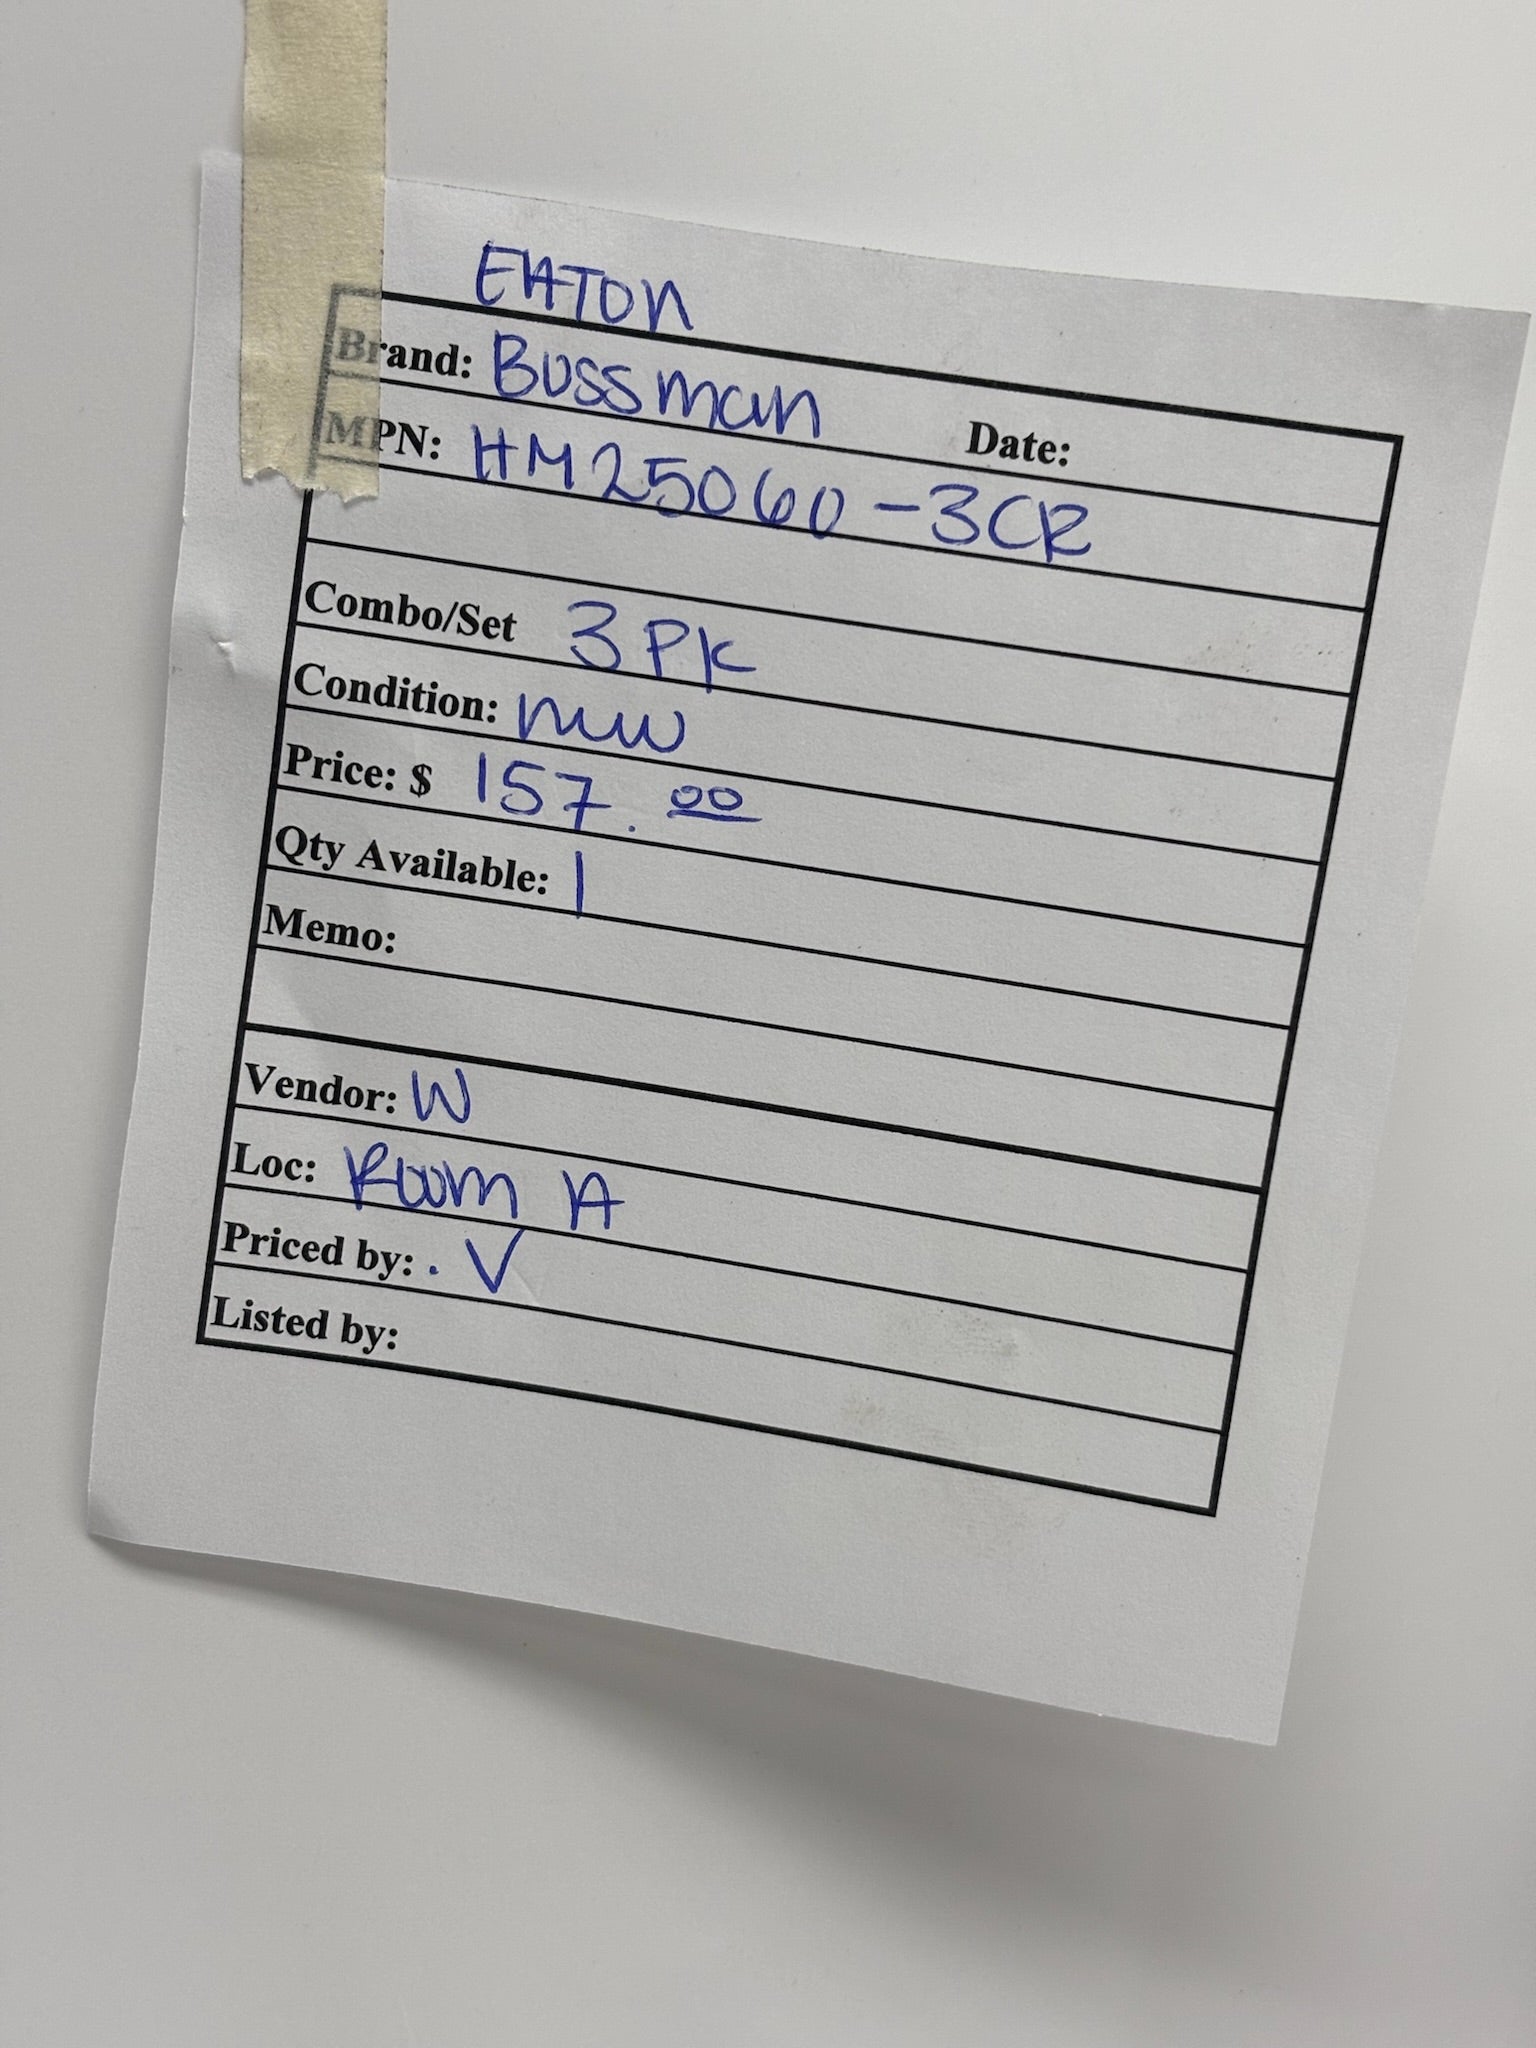 EATON
Brand: Bussman Date:
MPN: HM25060-3CR
Combo/Set 3PK
Condition: new
Price: $ 157.00
Qty Available: 1
Memo:
Vendor: W
Loc: Room A
Priced by: . V
Listed by: